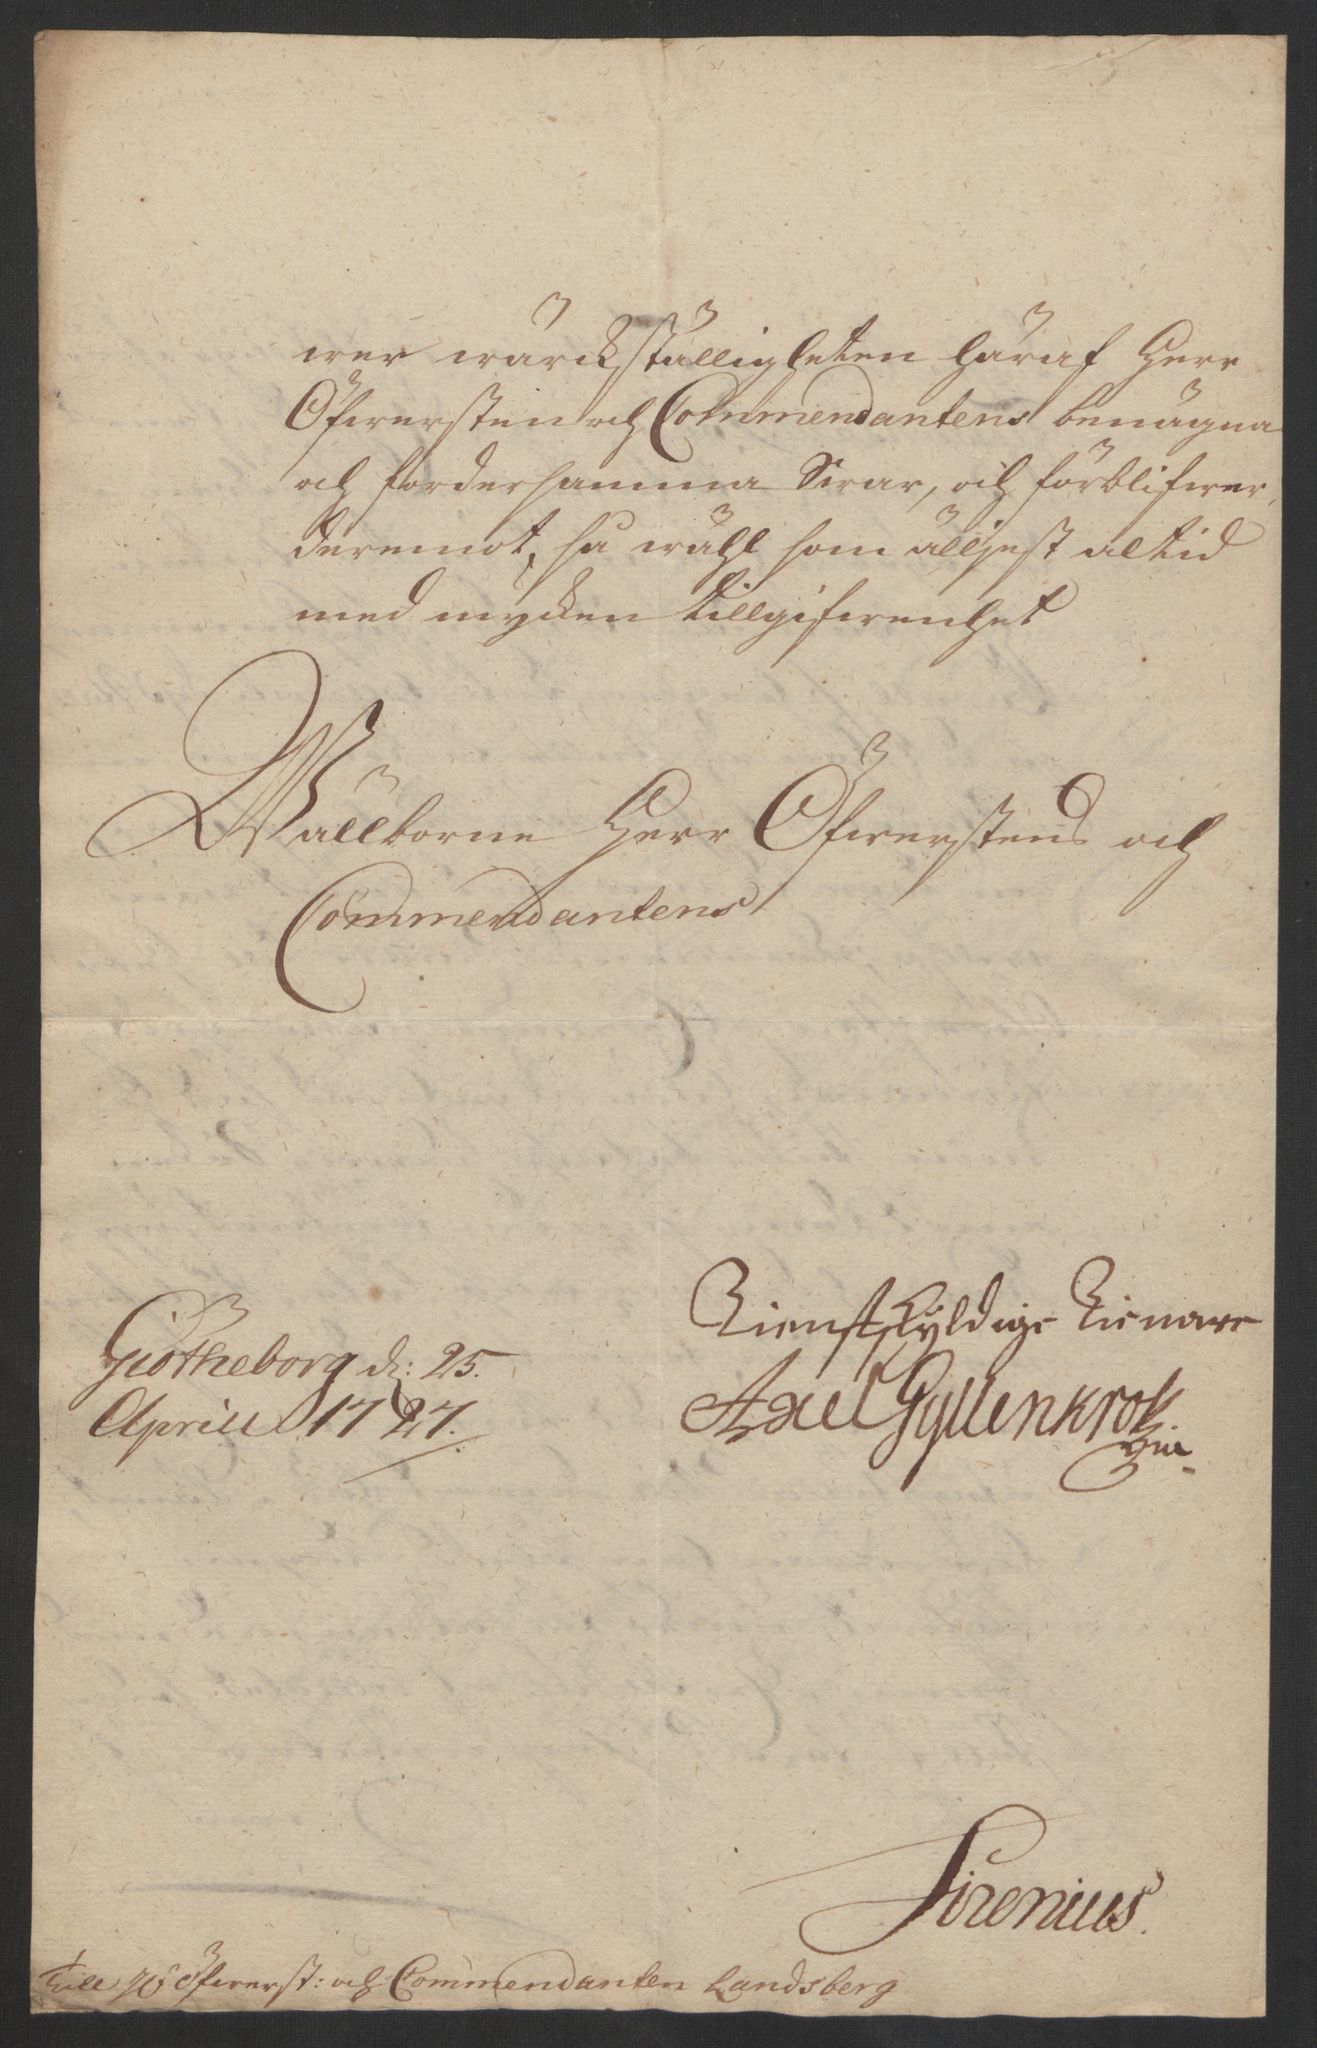 wer wärckställigheten häraf Herr
Öfwersten och Commendantens benägna
och fordersamma Swar, och förblifwer,
deremot, så wähl som älljest altid
med mycken tillgifwenhet
Wällborne Herr Öfwerstens och
Commendantens
Giötheborg d: 25.
Aprill 1727.
Tienstskyldige Tienare
Axel Gyllenkrok
Sirenius.
Till H: Öfwerst: och Commendanten Landsberg